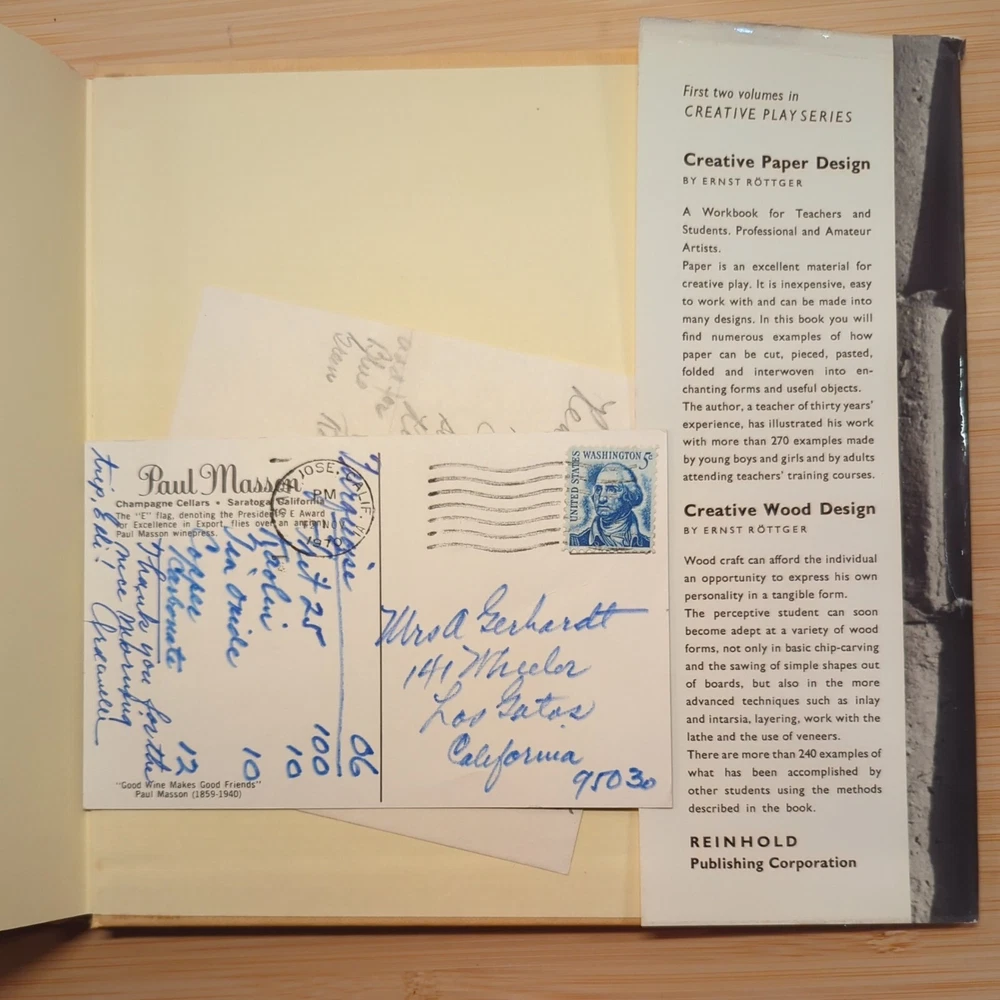 First two volumes in
CREATIVE PLAY SERIES
Creative Paper Design
BY ERNST RÖTTGER
A Workbook for Teachers and
Students. Professional and Amateur
Artists.
Paper is an excellent material for
creative play. It is inexpensive, easy
to work with and can be made into
many designs. In this book you will
find numerous examples of how
paper can be cut, pieced, pasted,
folded and interwoven into en-
chanting forms and useful objects.
The author, a teacher of thirty years'
experience, has illustrated his work
with more than 270 examples made
by young boys and girls and by adults
attending teachers' training courses.
Creative Wood Design
BY ERNST RÖTTGER
Wood craft can afford the individual
an opportunity to express his own
personality in a tangible form.
The perceptive student can soon
become adept at a variety of wood
forms, not only in basic chip-carving
and the sawing of simple shapes out
of boards, but also in the more
advanced techniques such as inlay
and intarsia, layering, work with the
lathe and the use of veneers.
There are more than 240 examples of
what has been accomplished by
other students using the methods
described in the book.
REINHOLD
Publishing Corporation
Paul Masson
Champagne Cellars • Saratoga, California
The "E" flag, denoting the President's E Award
for Excellence in Export, flies over an ancient
Paul Masson winepress.
"Good Wine Makes Good Friends"
Paul Masson (1859-1940)
JOSE, CALIF.
PM
NOV
1970
UNITED STATES
WASHINGTON 5c
Mrs A Gerhardt
141 Wheeler
Los Gatos
California
95030
06
25 100
Kaolin 10
Tin Oxide 10
Copper
Carbonate 12
Thank you for the
nice morning
trip, Edi!